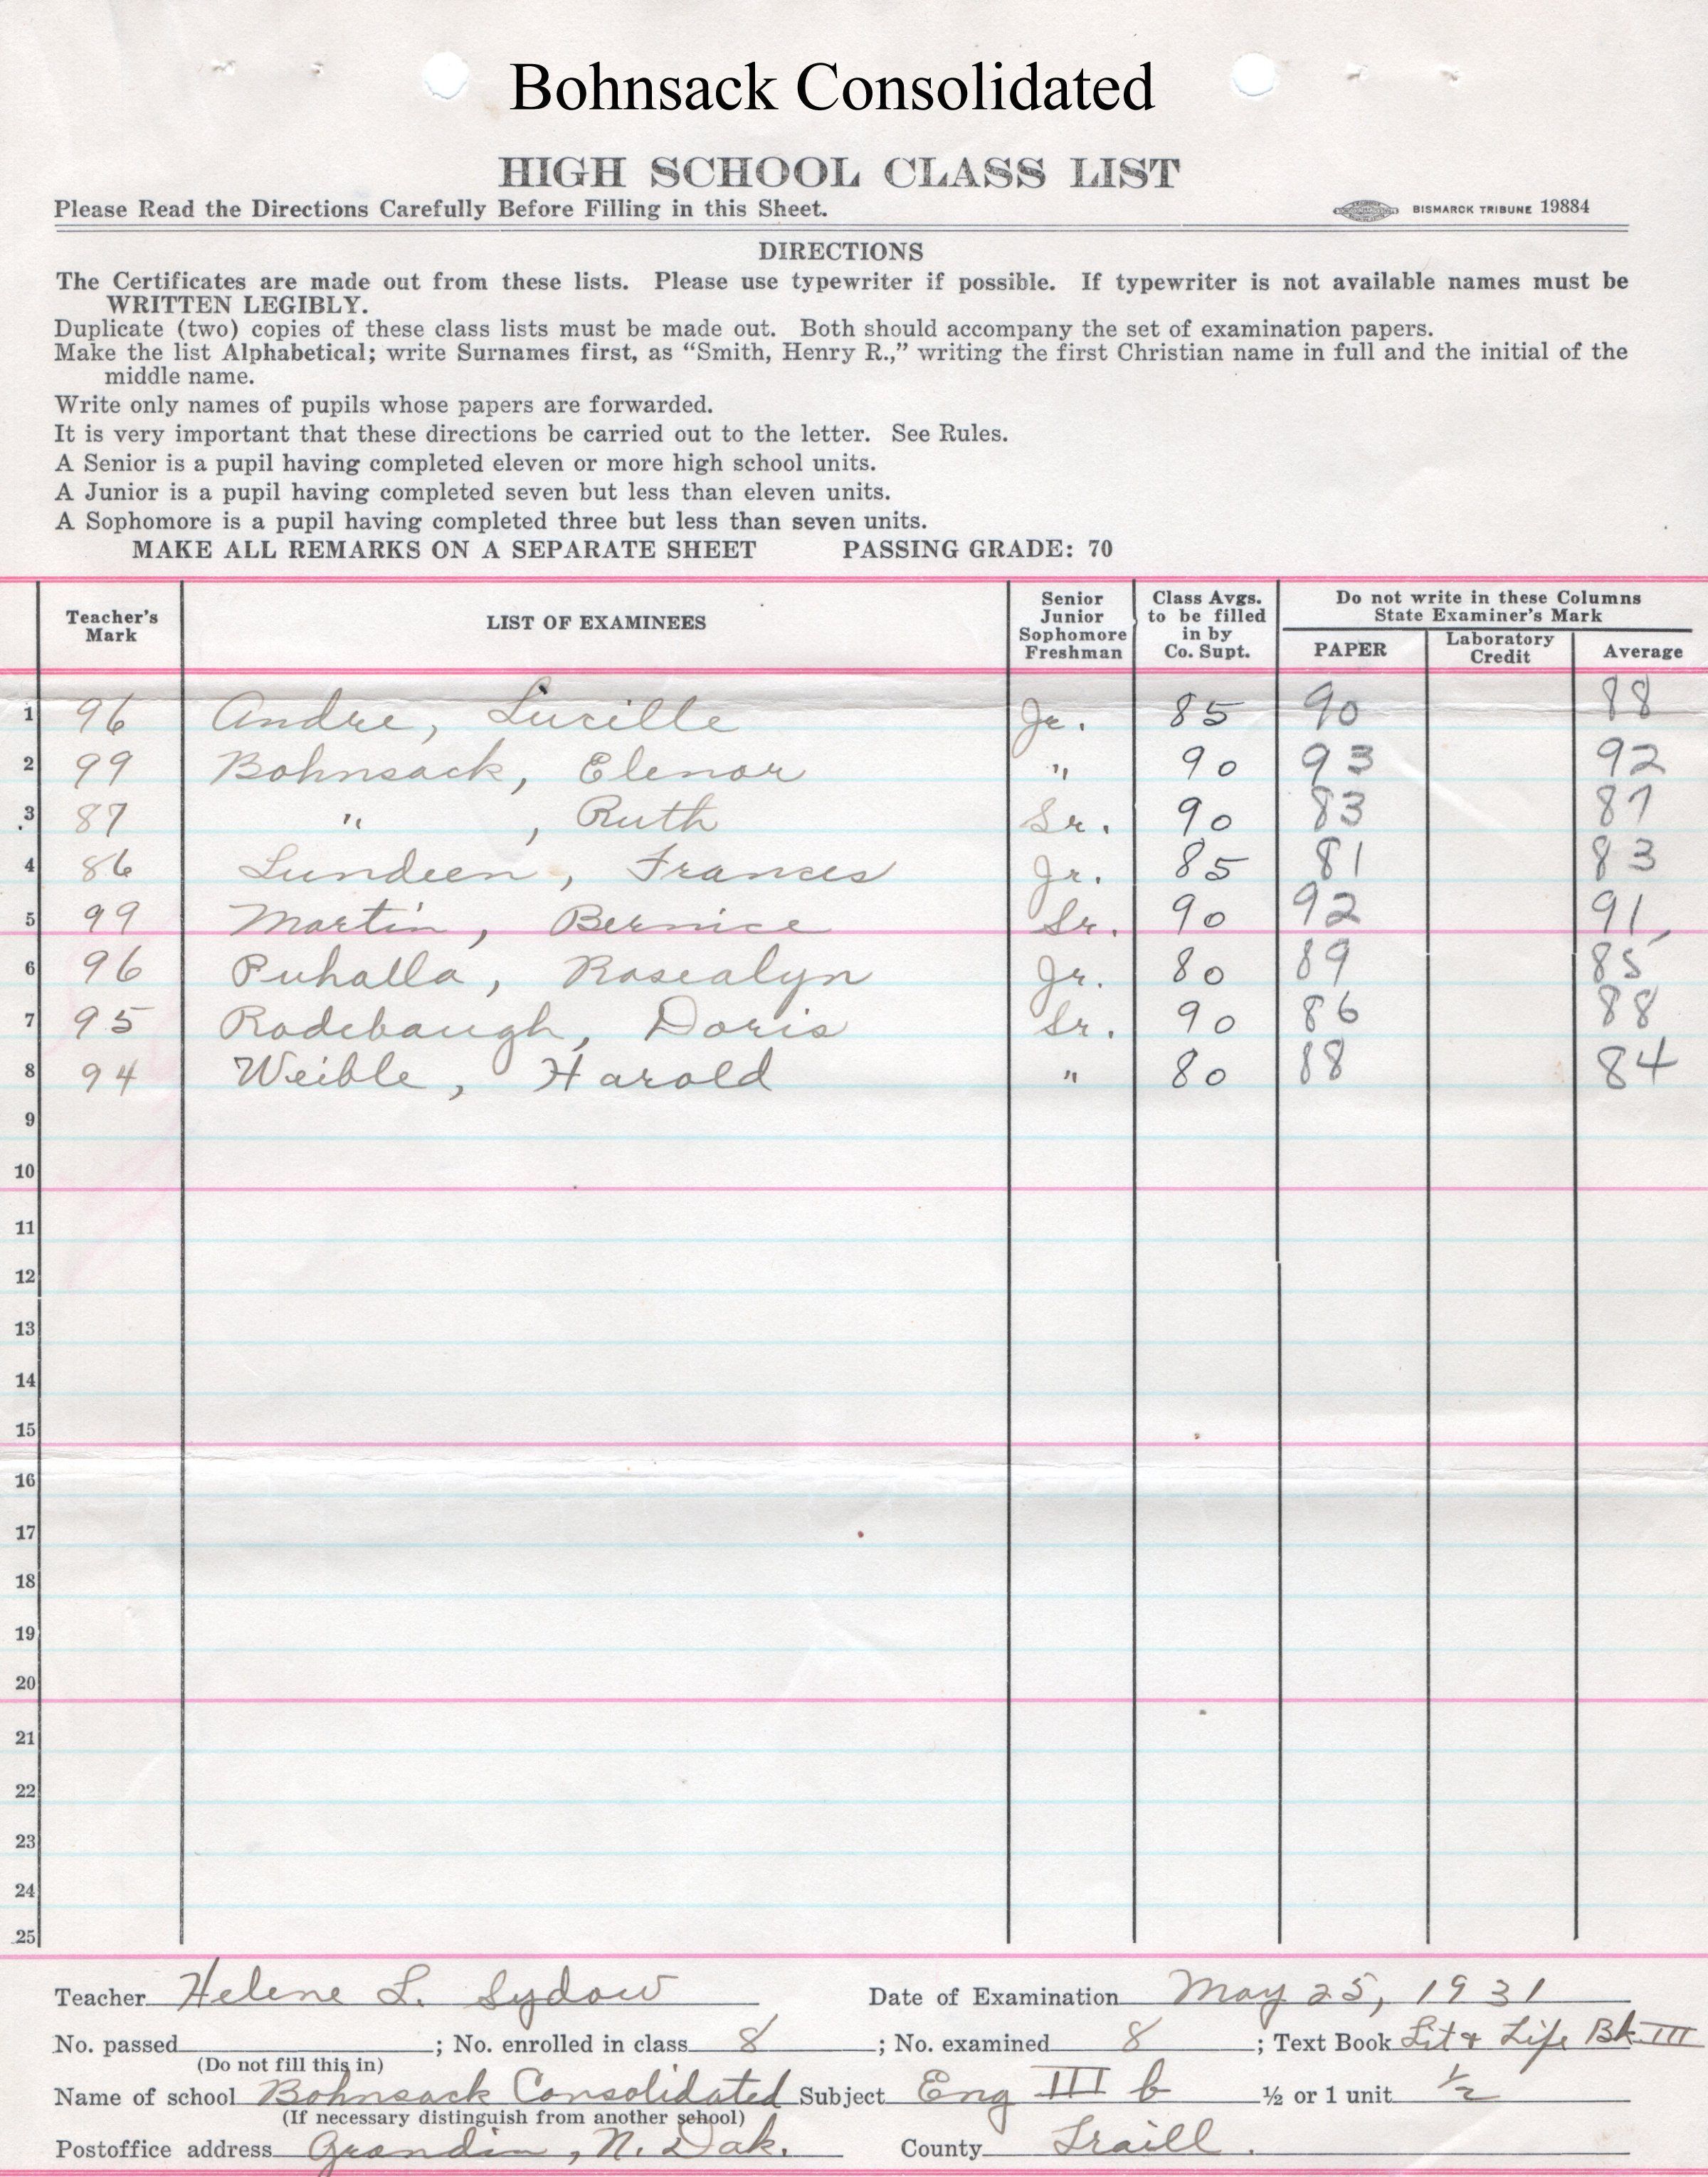 Bohnsack Consolidated
HIGH SCHOOL CLASS LIST
Please Read the Directions Carefully Before Filling in this Sheet. BISMARCK TRIBUNE 19884
DIRECTIONS
The Certificates are made out from these lists. Please use typewriter if possible. If typewriter is not available names must be
WRITTEN LEGIBLY.
Duplicate (two) copies of these class lists must be made out. Both should accompany the set of examination papers.
Make the list Alphabetical; write Surnames first, as “Smith, Henry R.,” writing the first Christian name in full and the initial of the
middle name.
Write only names of pupils whose papers are forwarded.
It is very important that these directions be carried out to the letter. See Rules.
A Senior is a pupil having completed eleven or more high school units.
A Junior is a pupil having completed seven but less than eleven units.
A Sophomore is a pupil having completed three but less than seven units.
MAKE ALL REMARKS ON A SEPARATE SHEET PASSING GRADE: 70
Teacher's
Mark
LIST OF EXAMINEES
Senior
Junior
Sophomore
Freshman
Class Avgs.
to be filled
in by
Co. Supt.
Do not write in these Columns
State Examiner's Mark
PAPER
Laboratory
Credit
Average
1 96 Andre, Lucille Jr. 85 90 88
2 99 Bohnsack, Elenor " 90 93 92
3 87 " , Ruth Sr. 90 83 87
4 86 Lundeen, Frances Jr. 85 81 83
5 99 Martin, Bernice Sr. 90 92 91
6 96 Puhalla, Rosealyn Jr. 80 89 85
7 95 Rodebaugh, Doris Sr. 90 86 88
8 94 Weible, Harold " 80 88 84
9
10
11
12
13
14
15
16
17
18
19
20
21
22
23
24
25
Teacher Helene L. Sydow Date of Examination May 25, 1931
No. passed ; No. enrolled in class 8 ; No. examined 8 ; Text Book Lit & Life Bk III
(Do not fill this in)
Name of school Bohnsack Consolidated Subject Eng III b ½ or 1 unit ½
(If necessary distinguish from another school)
Postoffice address Grandin, N. Dak. County Traill.